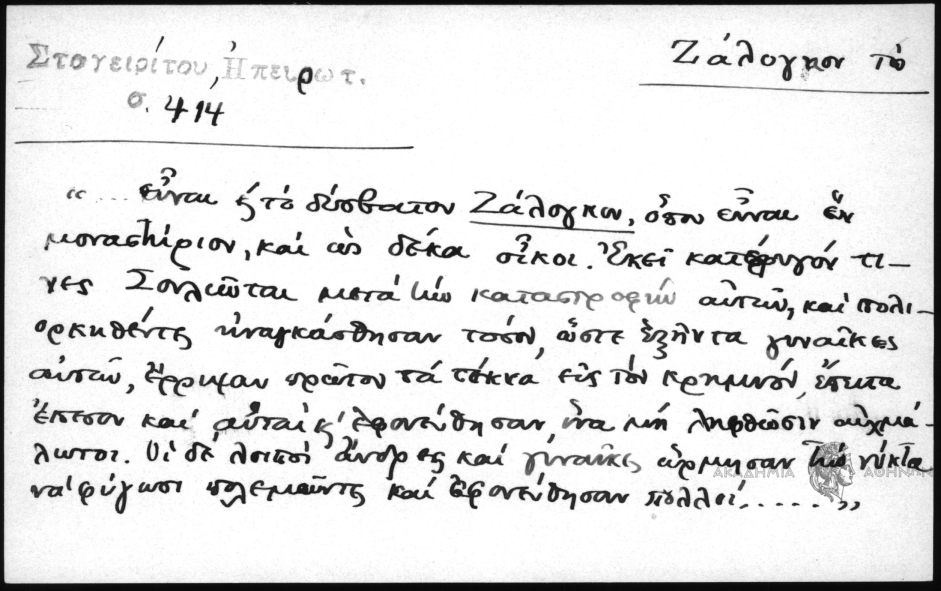 Σταγειρίτου, Ἠπειρωτ.
σ. 414
Ζάλογκον τὸ
"... εἶναι ϛ τὸ δύσβατον Ζάλογκον, ὅπου εἶναι ἓν
μοναστήριον, καὶ ὡς δέκα οἶκοι. Ἐκεῖ κατέφυγόν τι-
νες Σουλιῶται μετὰ τὴν καταστροφὴν αὐτῶν, καὶ πολι-
ορκηθέντες ἠναγκάσθησαν τόσον, ὥστε ἑξῆντα γυναῖκες
αὐτῶν, ἔρριψαν πρῶτον τὰ τέκνα εἰς τὸν κρημνόν, ἔπειτα
ἔπεσον καὶ αὐταὶ ϛ ἐφονεύθησαν, ἵνα μὴ ληφθῶσιν αἰχμά-
λωτοι. Οἱ δὲ λοιποὶ ἄνδρες καὶ γυναῖκες ὥρμησαν τὴν νύκτα
νὰ φύγωσι πολεμοῦντες καὶ ἐφονεύθησαν πολλοί, ....."
ΑΚΑΔΗΜΙΑ ΑΘΗΝΩΝ